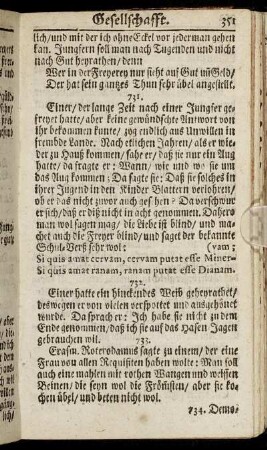 Gesellschafft. 351
lich/und mit der ich ohne Eckel vor jederman gehen
kan. Jungfern soll man nach Tugenden und nicht
nach Gut heyrathen/denn
Wer in der Freyerey nur sieht auf Gut uñ Geld/
Der hat sein gantzes Thun sehr übel angestellt.
731.
Einer/der lange Zeit nach einer Jungfer ge-
freyet hatte/aber keine gewündschte Antwort von
ihr bekommen kunte/zog endlich aus Unwillen in
frembde Lande. Nach etlichen Jahren/als er wie-
der zu Hauß kommen/sahe er/daß sie nur ein Aug
hatte/da fragte er: Wann/wie und wo sie um
das Aug kommen: Da sagte sie: Daß sie solches in
ihrer Jugend in den Kinder Blattern verlohren/
ob er das nicht zuvor auch gesehen? Da verschwur
er sich/daß er diß nicht in acht genommen. Daher
man wol sagen mag/die Liebe ist blind/und ma-
chet auch die Freyer blind/und saget der bekannte
Schul-Verß sehr wol: (vam;
Si quis amat cervam, cervam putat esse Miner-
Si quis amat ranam, ranam putat esse Dianam.
732.
Einer hatte ein hinckendes Weib geheyrathet/
deswegen er von vielen verspottet und ausgehönet
wurde. Da sprach er: Ich habe sie nicht zu dem
Ende genommen/daß ich sie auf das Hasen Jagen
gebrauchen wil.
733.
Erasm. Roterodamus sagte zu einem/der eine
Frau von allen Requisiten haben wolte: Man soll
auch eine mahlen mit rothen Wangen und weissen
Beinen/die seyn wol die Frömsten/aber sie ko-
chen übel/und beten nicht wol.
734. Demo-